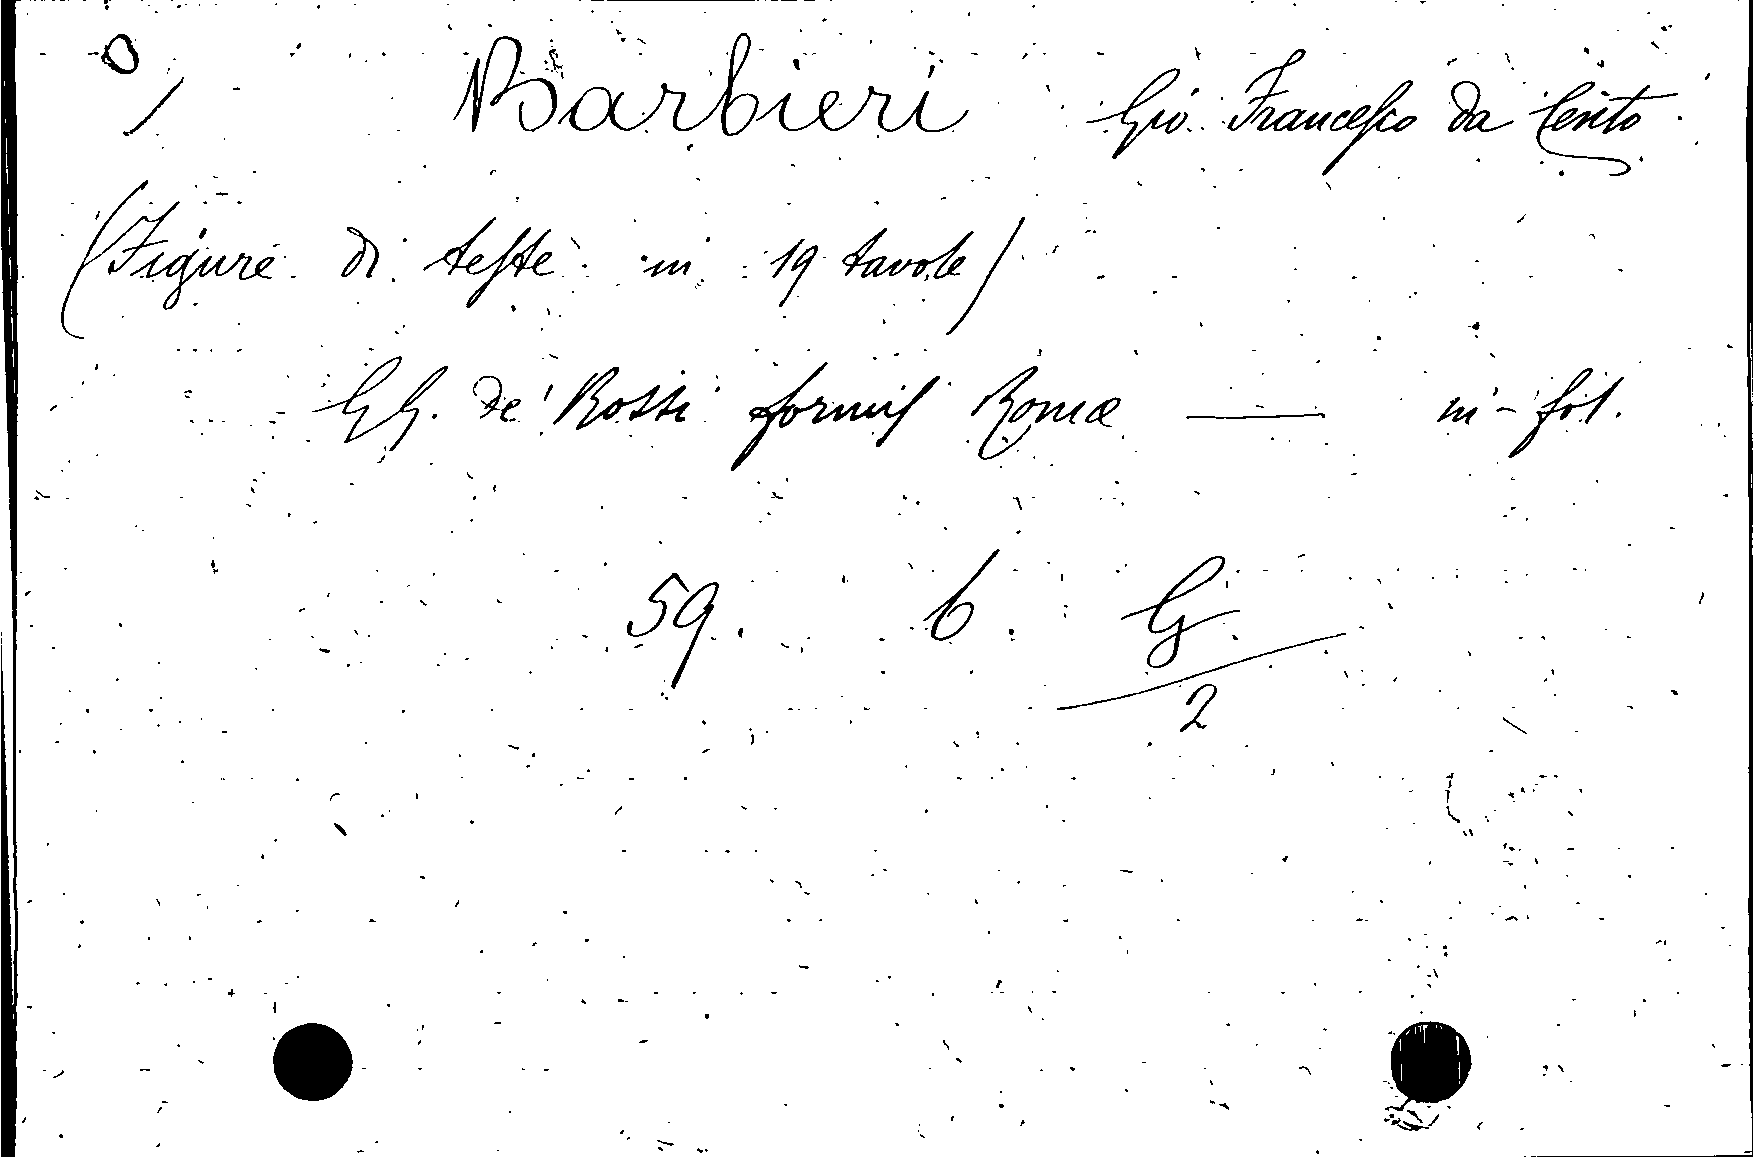 Barbieri Gio Francesco da Cento
(Figure di teste in 19 tavole)
GG. de' Rossi formis Romæ — in-fol.
59. 6. G
2